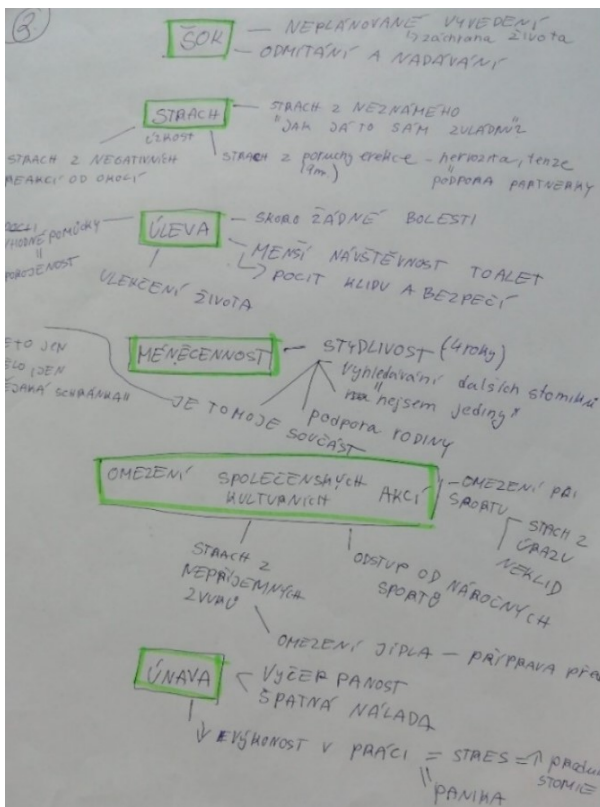 3.
ŠOK
NEPLÁNOVANÉ VYVEDENÍ
↳ záchrana života
ODMÍTÁNÍ A NADÁVÁNÍ
STRACH
ÚZKOST
STRACH Z NEZNÁMÉHO
"JAK JÁ TO SÁM ZVLÁDNU"
STRACH Z NEGATIVNÍCH
REAKCÍ OD OKOLÍ
STRACH Z poruchy erekce - nervozita, tenze
PODPORA PARTNERKY
ÚLEVA
SKORO ŽÁDNÉ BOLESTI
MENŠÍ NÁVŠTĚVNOST TOALET
POCIT KLIDU A BEZPEČÍ
POMŮCKY
ULEHČENÍ ŽIVOTA
MÉNĚCENNOST
STYDLIVOST (4 roky)
Vyhledávání dalších stomiků
nejsem jediný"
podpora RODINY
JE TO MOJE
SOUČÁST
JE TO JEN
JEN
SCHRÁNKA"
OMEZENÍ SPOLEČENSKÝCH AKCÍ
KULTURNÍCH
OMEZENÍ PŘI
SPORTU
STACH Z
ÚRAZU
NEKLID
STRACH Z
NEPŘÍJEMNÝCH
ZVUKŮ
ODSTUP OD NÁROČNÝCH
SPORTŮ
OMEZENÍ JÍDLA - PŘÍPRAVA
ÚNAVA
VYČERPANOST
ŠPATNÁ NÁLADA
V PRÁCI = STRES = ↑
STOMIE
PANIKA